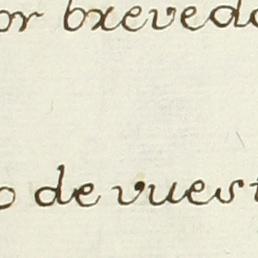 or breveda
o de vuest